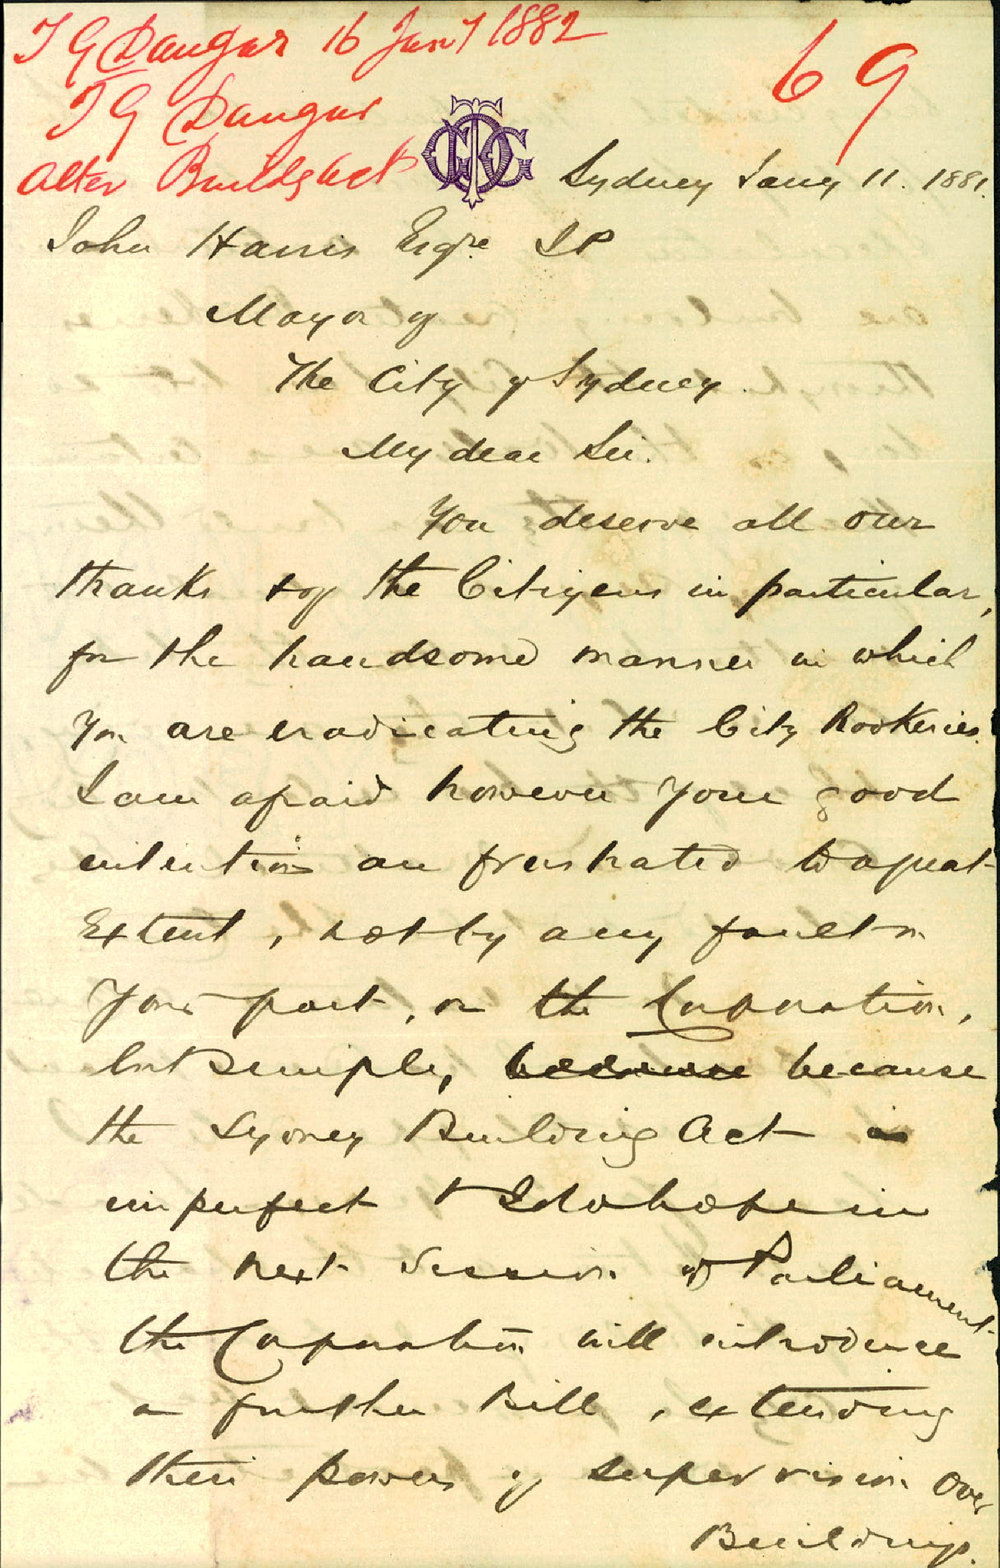 T G Dangar 16 Jany 1882
T G Dangar
alter Buildg act
69
Sydney Jany 11. 1881.
John Harris Esqre JP
Mayor of
The City of Sydney.
My dear Sir.
You deserve all our
thanks & of the Citizens in particular,
for the handsome manner in which
you are eradicating the City Rookeries.
I am afraid however your good
intentions are frustrated to a great
Extent, not by any fault on
your part, or the Corporation,
but simply, because because
the Sydney Building Act is
imperfect & I do hope in
the next Session of Parliament
the Corporation will introduce
a further Bill, extending
their powers of supervision over
Buildings.